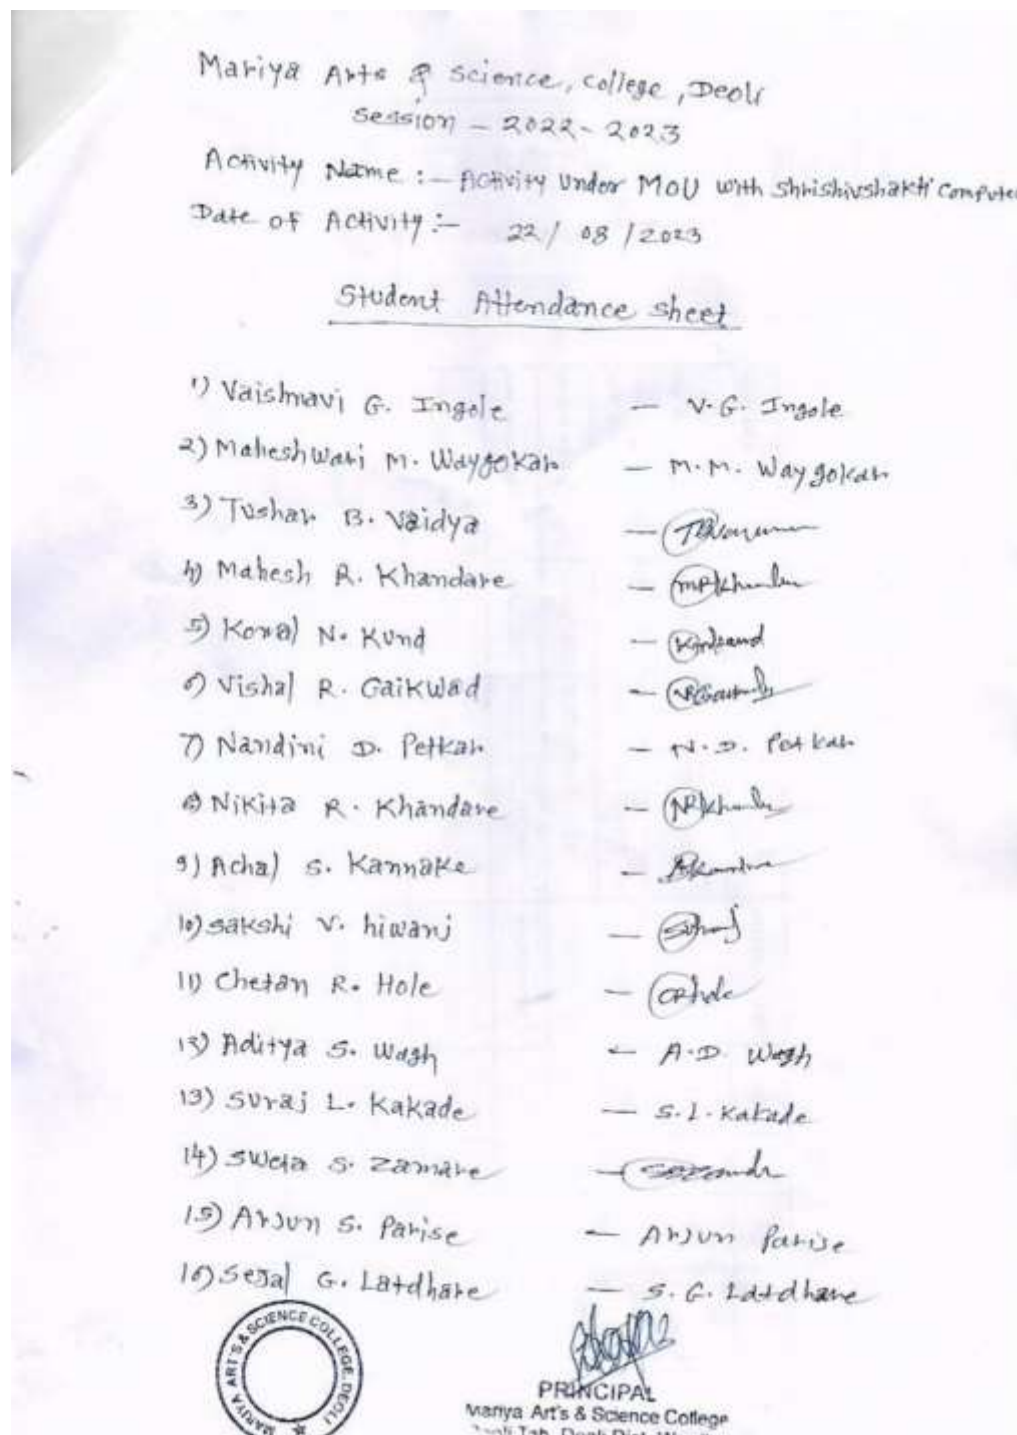 Mariya Arts & Science, College, Deoli
Session - 2022-2023
Activity Name :- Activity Under MOU with Shrishivshakti Compute
Date of Activity :- 22/08/2023
Student Attendance sheet
1) Vaishnavi G. Ingole - V.G. Ingole
2) Maheshwari M. Waygokar - M.M. Waygokar
3) Tushar B. Vaidya -
4) Mahesh R. Khandare -
5) Komal N. Kund -
6) Vishal R. Gaikwad -
7) Nandini D. Petkar - N.D. Petkar
8) Nikita R. Khandare -
9) Achal S. Kannake -
10) Sakshi V. hiwanj -
11) Chetan R. Hole - CRhole
12) Aditya S. Wagh - A.D. Wagh
13) Suraj L. Kakade - S.L. Kakade
14) Sweta S. Zamare -
15) Arjun S. Parise - Arjun Parise
16) Sejal G. Latdhare - S.G. Latdhare
MARIYA ART'S & SCIENCE COLLEGE, DEOLI
PRINCIPAL
Mariya Art's & Science College
Deoli Dist.